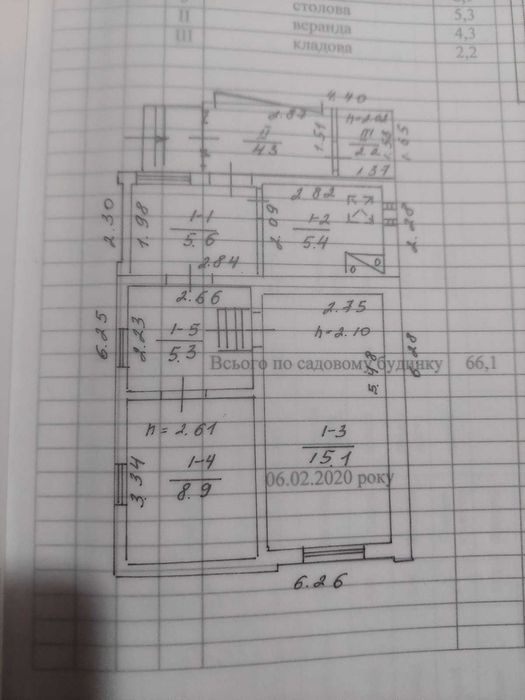 столова 5,3
II веранда 4,3
III кладова 2,2
4.40
2.87 h=2.02
II 4.3 1.51 III 2.2 1.65
1.37
2.30 1.98 1-1 5.6 2.09 2.82 1-2 5.4 2.28
2.84
2.66 2.75
6.25 2.23 1-5 5.3 h=2.10
Всього по садовому будинку 66,1
5.48 6.28
h=2.61 1-3 15.1
3.34 1-4 8.9
06.02.2020 року
6.26